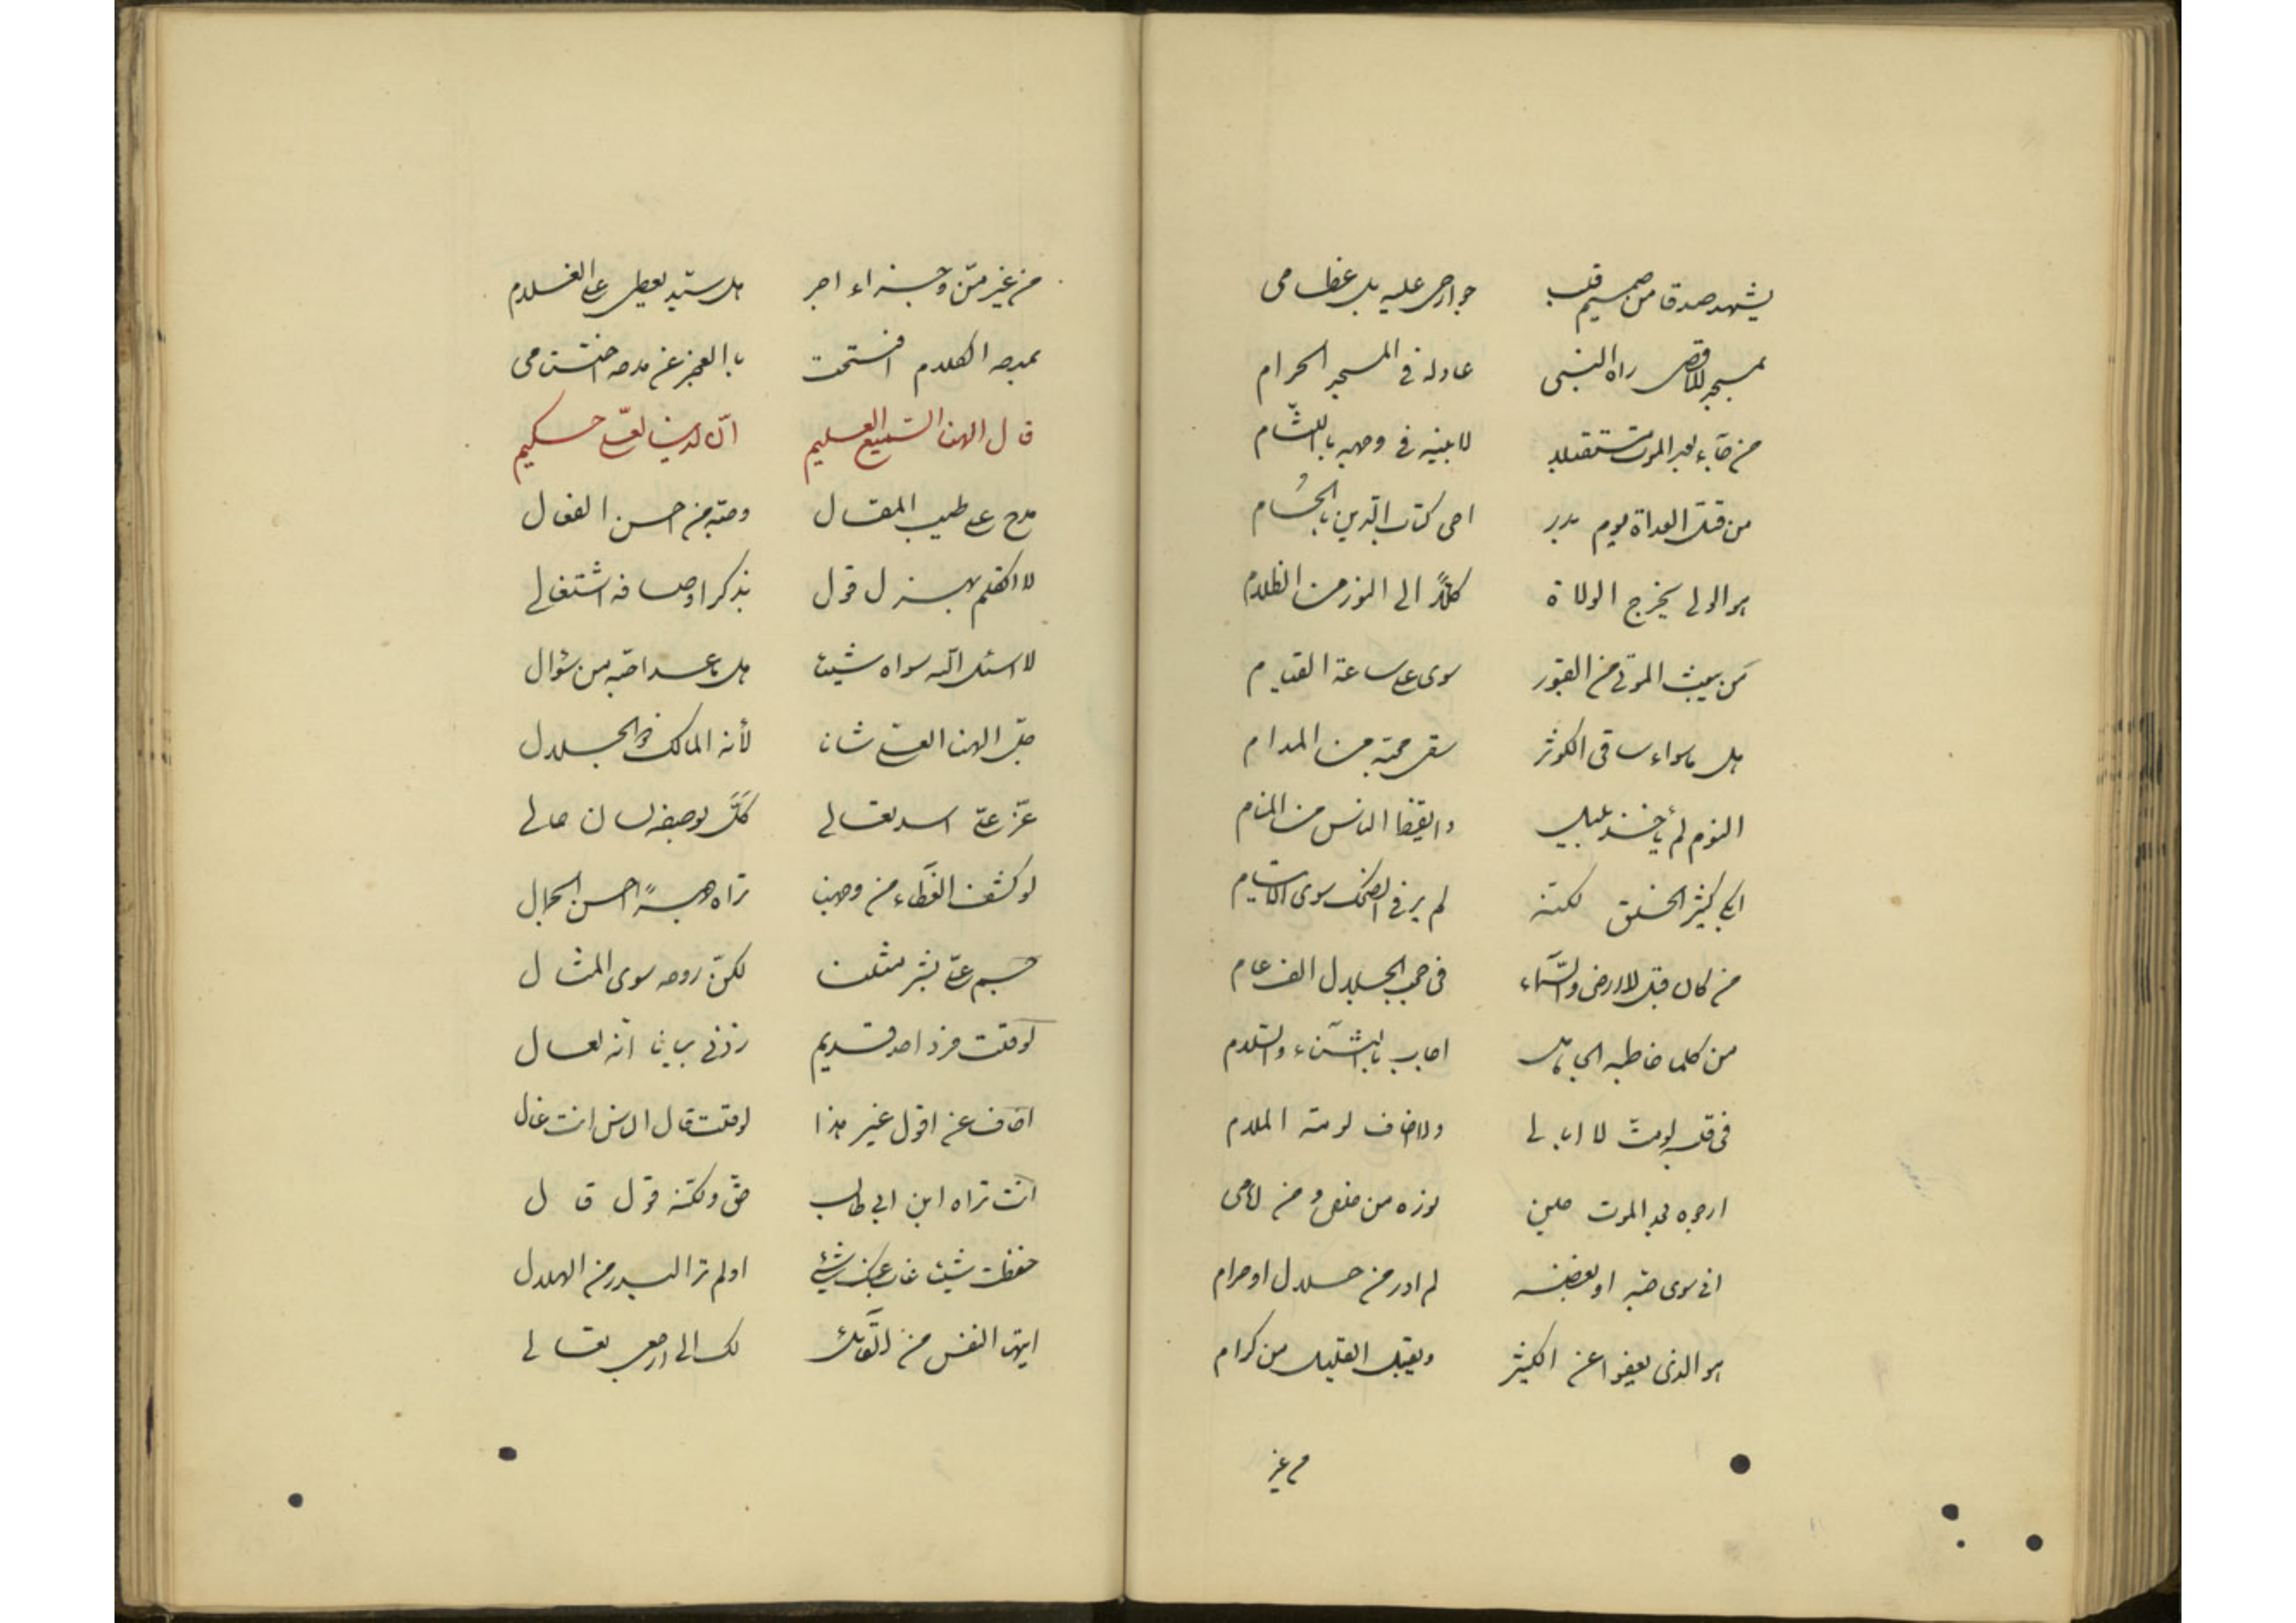 يشهد صدقا من صميم قلب جوارحى عليه بل عظامى
بمسجد الاقصى راه النبى عادله فى المسجد الحرام
من جآء بعد الموت مستقبلا لابنيه فى وجهه باللثام
من قتل العداة يوم بدر احى كتاب الدين بالحسام
هو الولى يخرج الولاة كلاً الى النور من الظلام
من يبعث الموتى من القبور سوى على ساعة القيام
هل ما سواء ساقى الكوثر سقى محبه من المدام
النوم لم يأخذ عليا وايقظ الناس من المنام
ابكى كثير الخلق لكنه لم ير فى الضحك سوى ابتسام
من كان قبل الارض والسمآء فى حجب الجلال الف عام
من كلما خاطبه الجاهل اجاب بالثنآء والسلام
فى قلبه لو مت لا ابالى ولا اخاف لومة الملام
ارجوه بعد الموت حين نوره من خلفى ومن امامى
انى سوى حبه او بغضه لم ادر من حلال او حرام
هو الذى يعفو اعن الكثير ويقبل القليل من كرام
من غير
من غير منّ وجزاء اجر هل سيد يعطى على الغلام
بمدحه الكلام افتتحت بالعجز عن مدحه اختتامى
قال الهنا السميع العليم انه لدينا لعلى حكيم
مدح على طيب المقال وحبه من احسن الفعال
لا اتكلم بهزل قول بذكر اوصافه اشتغالى
لا اسئل اله سواه شيئا هل ما عدا حبه من سؤال
جل الهنا العلى شانا لأنه المالك ذو الجلال
عز على اسد تعالى كل بوصفه لسان حالى
لو كشف الغطاء من وجهنا تراه وجهه احسن الجمال
جسم على بشر مثلنا لكن روحه سوى المثال
لو قلت فرد احد قديم زدنى بيانا انه لعال
اخاف عن اقول غير هذا لو قلت قال الناس انت غال
انت تراه ابن ابى طالب حق ولكنه قول قال
حفظت شيئا غاب عنك شئ اولم تر البدر من الهلال
ايتها النفس من لقآئك لك الى ارجعى تعالى